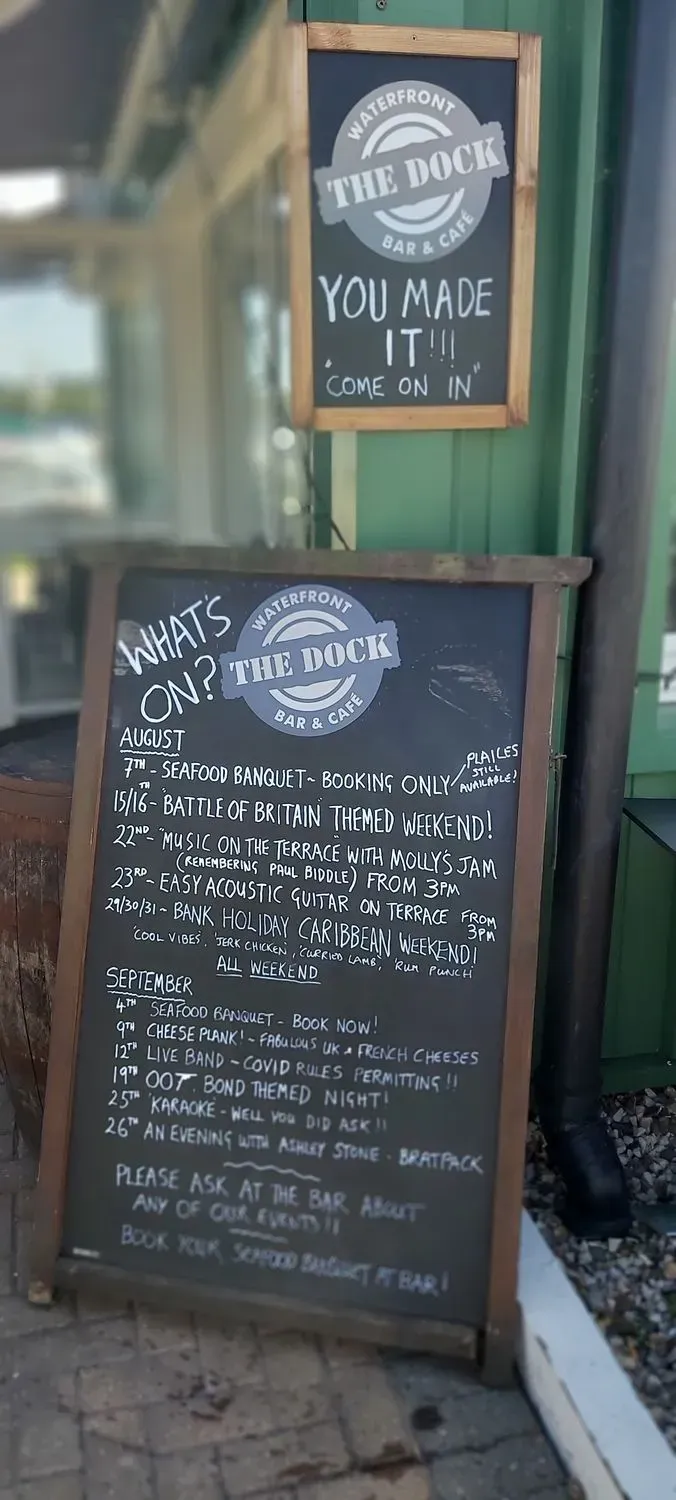 WATERFRONT
THE DOCK
BAR & CAFÉ
YOU MADE
IT!!!
"COME ON IN"
WHAT'S
ON?
WATERFRONT
THE DOCK
BAR & CAFÉ
AUGUST
7TH - SEAFOOD BANQUET ~ BOOKING ONLY
PLAICES
STILL
AVAILABLE!
15/16TH - "BATTLE OF BRITAIN" THEMED WEEKEND!
22ND - "MUSIC ON THE TERRACE" WITH MOLLY'S JAM
(REMEMBERING PAUL BIDDLE) FROM 3PM
23RD - EASY ACOUSTIC GUITAR ON TERRACE FROM
3PM
29/30/31 ~ BANK HOLIDAY CARIBBEAN WEEKEND!
'COOL VIBES', 'JERK CHICKEN', 'CURRIED LAMB', 'RUM PUNCH'
ALL WEEKEND
SEPTEMBER
4TH SEAFOOD BANQUET - BOOK NOW!
9TH CHEESE PLANK! - FABULOUS UK & FRENCH CHEESES
12TH LIVE BAND - COVID RULES PERMITTING!!
19TH 007 BOND THEMED NIGHT!
25TH 'KARAOKE' - WELL YOU DID ASK!!
26TH AN EVENING WITH ASHLEY STONE - BRATPACK
PLEASE ASK AT THE BAR ABOUT
ANY OF OUR EVENTS!!
BOOK YOUR SEAFOOD BANQUET AT BAR!